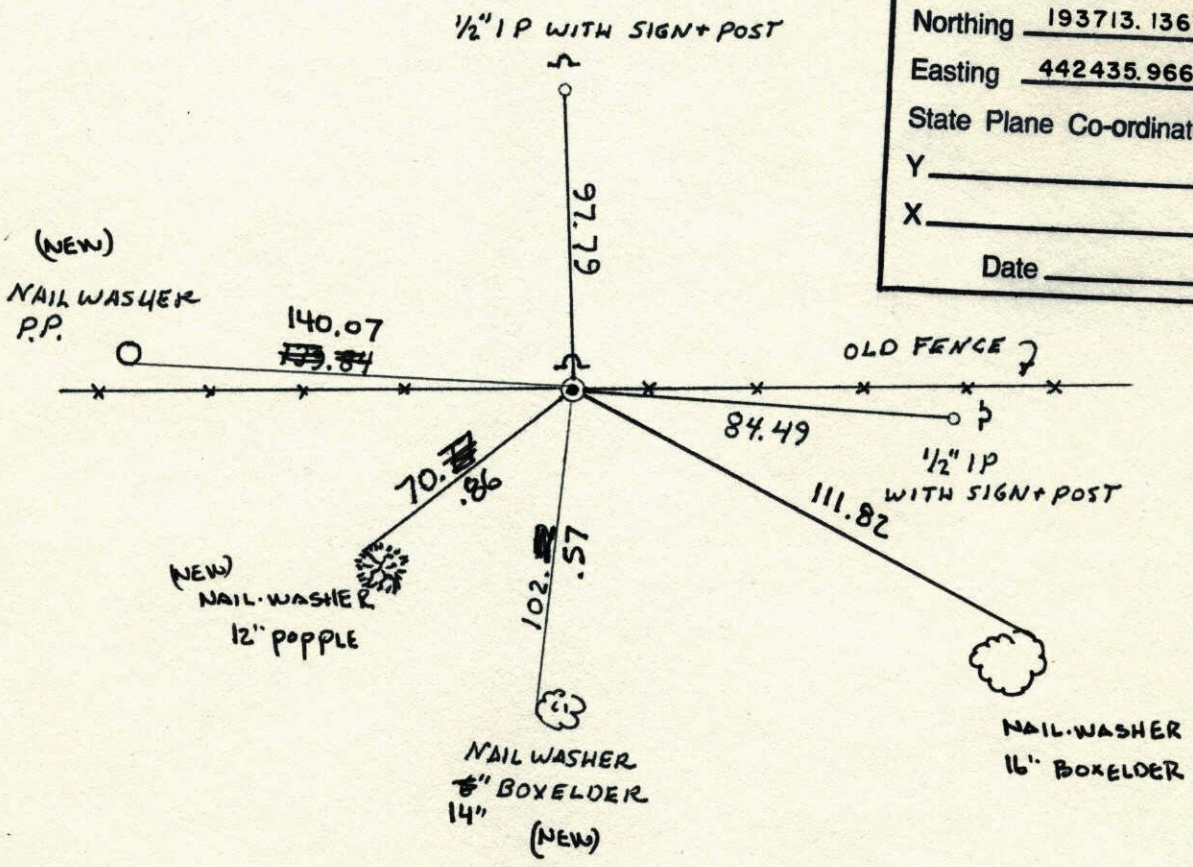 1/2" I P WITH SIGN + POST
Northing 193713.136
Easting 442435.966
State Plane Co-ordinat
Y
X
Date
97.79
(NEW)
NAIL WASHER
P.P.
140.07
139.84
OLD FENCE
84.49
1/2" IP
WITH SIGN + POST
70.
.86
111.82
102.
.57
(NEW)
NAIL-WASHER
12" POPPLE
NAIL WASHER
6" BOXELDER
14"
(NEW)
NAIL-WASHER
16" BOXELDER